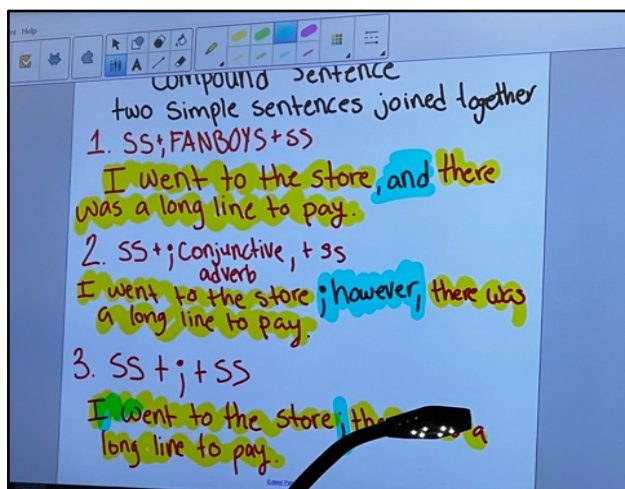 Help
Compound Sentence
two simple sentences joined together
1. SS+,FANBOYS+SS
I went to the store, and there
was a long line to pay.
2. SS+; Conjunctive, + SS
adverb
I went to the store ; however, there was
a long line to pay.
3. SS + ; + SS
I went to the store; a
long line to pay.